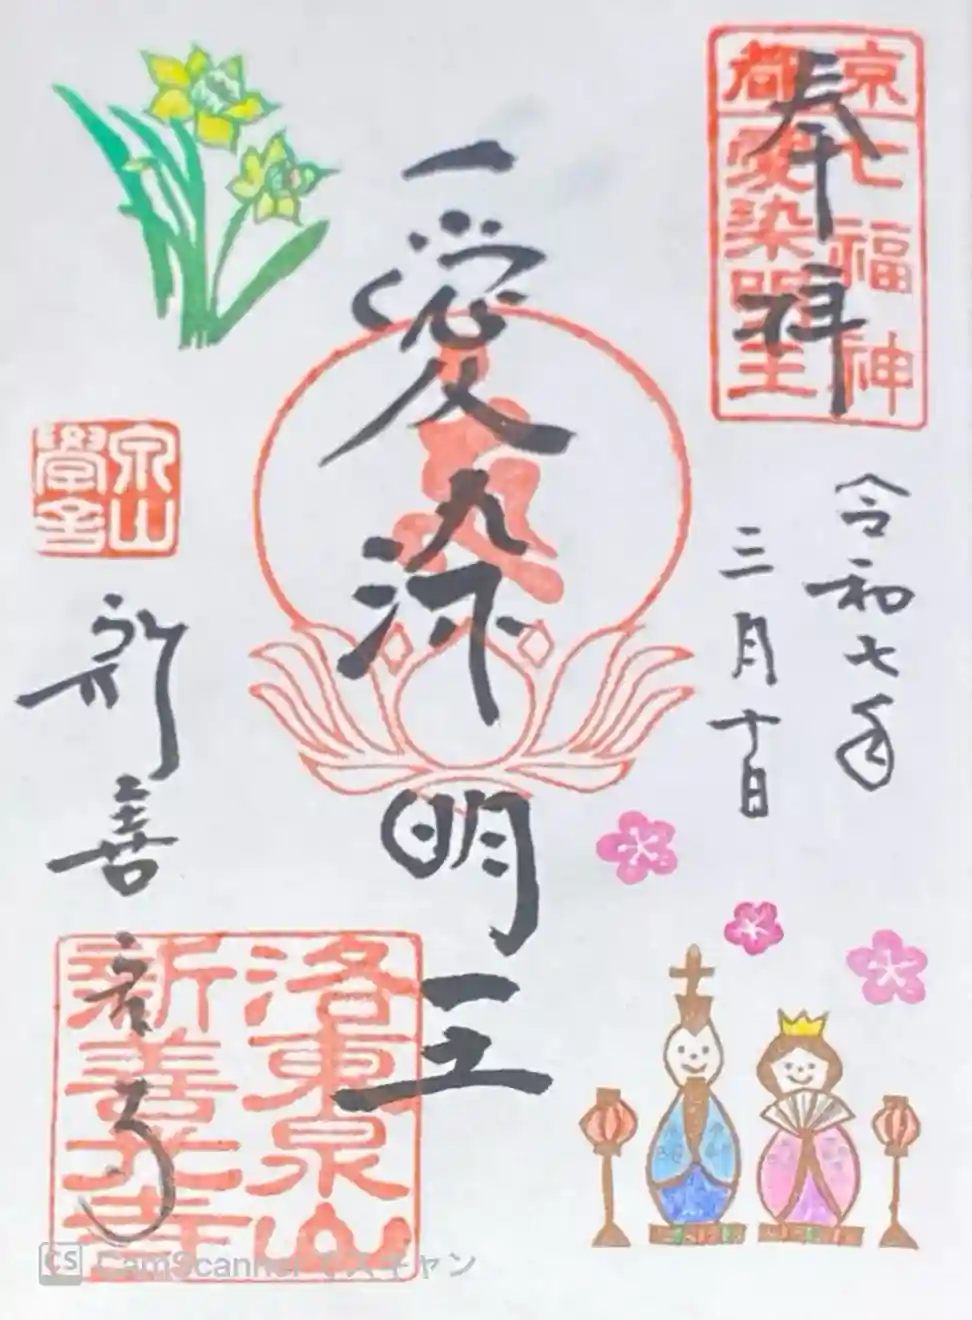 奉拝
京都七福神
愛染明王
令和七年
三月十日
愛染明王
泉山
學寺
新善光寺
洛東泉山
新善光寺
CS CamScanner でスキャン